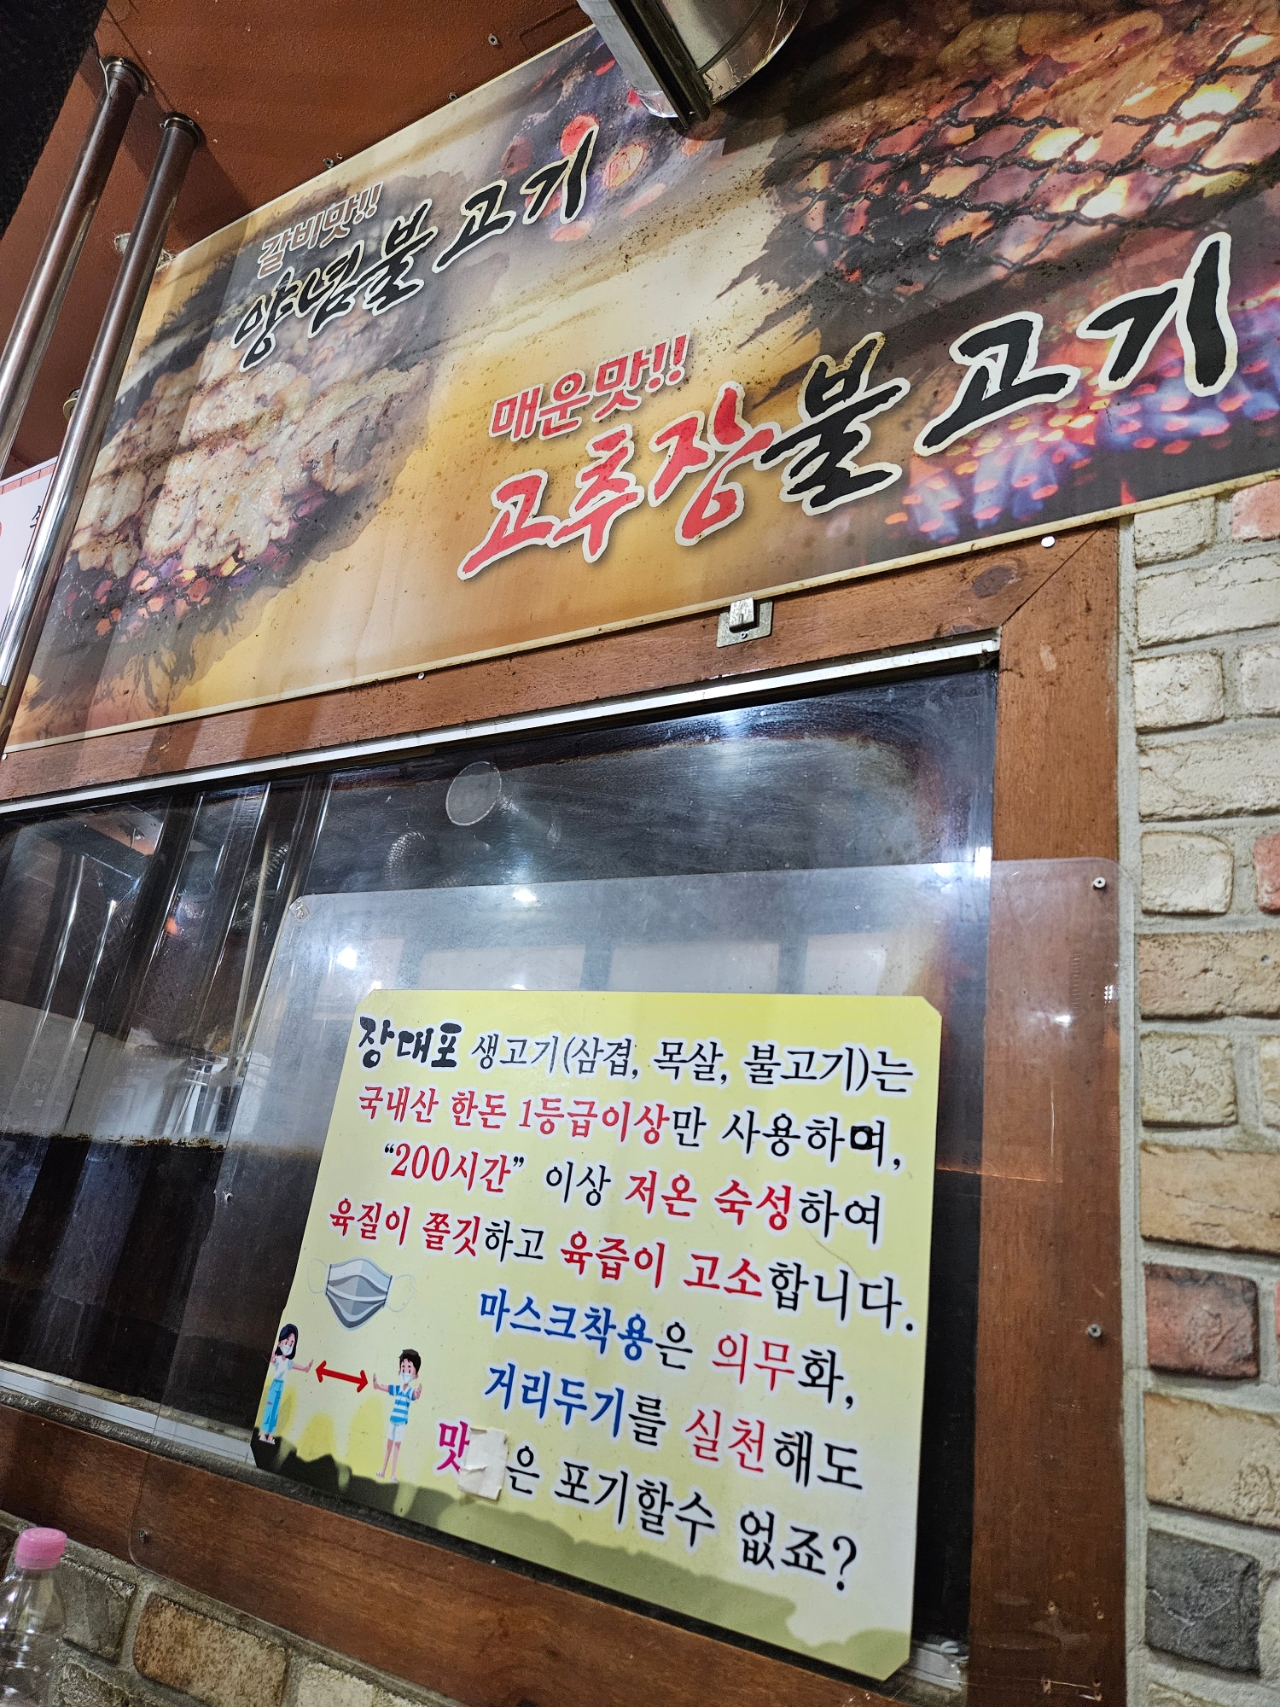 갈비맛!!
양념불고기
매운맛!!
고추장불고기
장대포 생고기(삼겹, 목살, 불고기)는
국내산 한돈 1등급이상만 사용하며,
“200시간” 이상 저온 숙성하여
육질이 쫄깃하고 육즙이 고소합니다.
마스크착용은 의무화,
거리두기를 실천해도
맛은 포기할수 없죠?